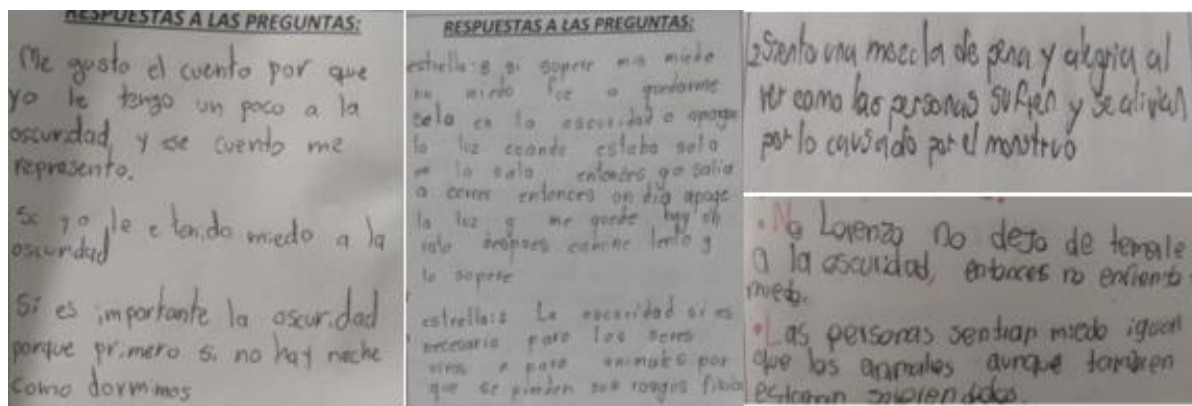 RESPUESTAS A LAS PREGUNTAS:
Me gusto el cuento por que
yo le tengo un poco a la
oscuridad y ese cuento me
represento.
Si yo le e tenido miedo a la
oscuridad
Si es importante la oscuridad
porque primero si no hay noche
como dormimos
RESPUESTAS A LAS PREGUNTAS:
estrella:8 si sopere mis miedo
mi miedo fue a quedarme
solo en la oscuridad o apagar
la luz cuando estaba solo
en la sala entonces yo salia
a correr entonces un dia apage
la luz y me quede hay un
rato despues camine lento y
lo sopere
estrella: La oscuridad si es
necesaria para los seres
vivos o para animales por
que se pierden sus rasgos fisico
2 Siento una mezcla de pena y alegria al
ver como las personas sufren y se alivian
por lo causado por el monstruo
• No Lorenzo no dejo de temale
a la oscuridad, entonces no enfrento
miedo.
• Las personas sentian miedo igual
que los animales aunque tambien
estaban sorprendidos.